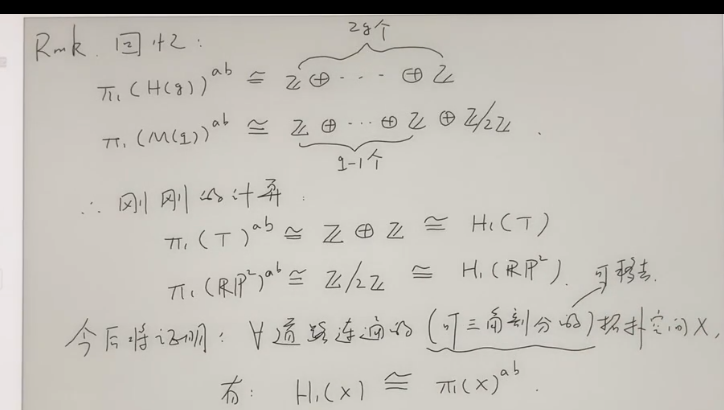 Rmk. 回忆:
2g个
π₁(H(g))^{ab} ≅ ℤ ⊕ ··· ⊕ ℤ
π₁(M(q))^{ab} ≅ ℤ ⊕ ··· ⊕ ℤ ⊕ ℤ/2ℤ.
q-1个
∴ 刚刚的计算:
π₁(T)^{ab} ≅ ℤ ⊕ ℤ ≅ H₁(T)
π₁(ℝP²)^{ab} ≅ ℤ/2ℤ ≅ H₁(ℝP²). 可移去.
今后将证明: ∀道路连通的(可三角剖分的)拓扑空间X,
有: H₁(X) ≅ π₁(X)^{ab}.